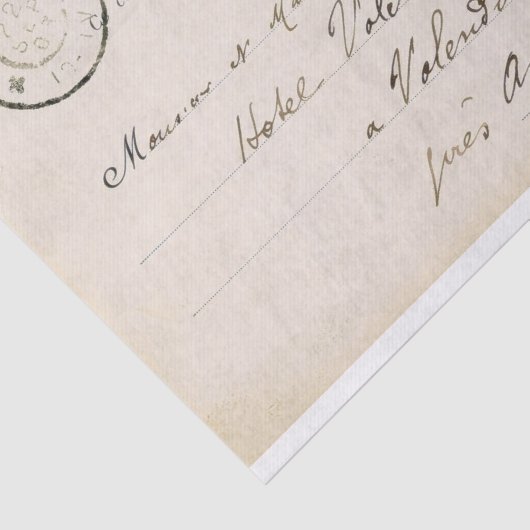 Monsieur N. Ma
Hotel Vole
a Volend
près A